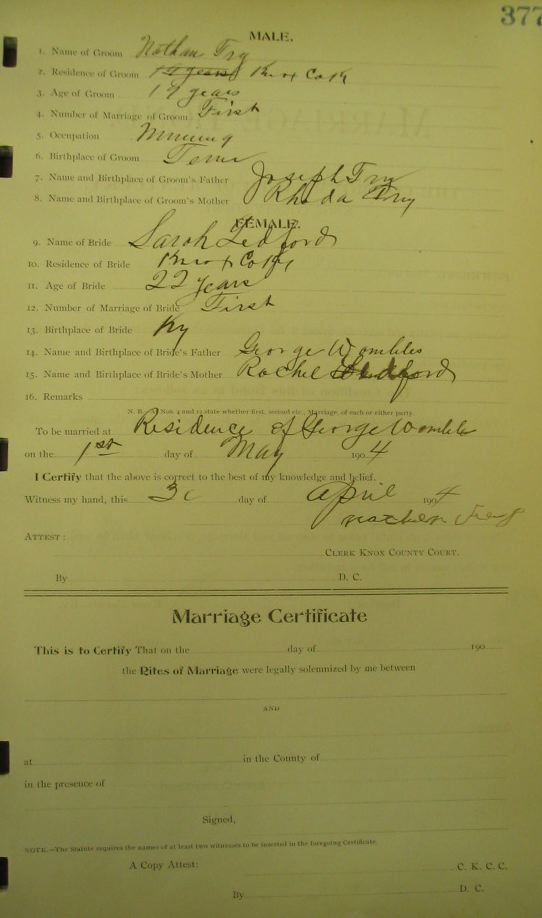 377
MALE.
1. Name of Groom Nathan Fry
2. Residence of Groom 19 years Knox Co Ky
3. Age of Groom 19 years
4. Number of Marriage of Groom First
5. Occupation Mining
6. Birthplace of Groom Tenn
7. Name and Birthplace of Groom's Father Joseph Fry
8. Name and Birthplace of Groom's Mother Rhoda Fry
FEMALE.
9. Name of Bride Sarah Ledford
10. Residence of Bride Knox Co Ky
11. Age of Bride 22 years
12. Number of Marriage of Bride First
13. Birthplace of Bride Ky
14. Name and Birthplace of Bride's Father George Wombles
15. Name and Birthplace of Bride's Mother Rachel Ledford
16. Remarks
N. B.—At Nos. 4 and 12 state whether first, second etc., Marriage, of each or either party.
To be married at Residence of George Wombles
on the 1st day of May 1904
I Certify that the above is correct to the best of my knowledge and belief.
Witness my hand, this 30 day of April 1904
ATTEST:
CLERK KNOX COUNTY COURT.
By D. C.
Marriage Certificate
This is to Certify That on the day of 190
the Rites of Marriage were legally solemnized by me between
AND
at in the County of
in the presence of
Signed,
NOTE.—The Statute requires the names of at least two witnesses to be inserted in the foregoing Certificate.
A Copy Attest: C. K. C. C.
By D. C.